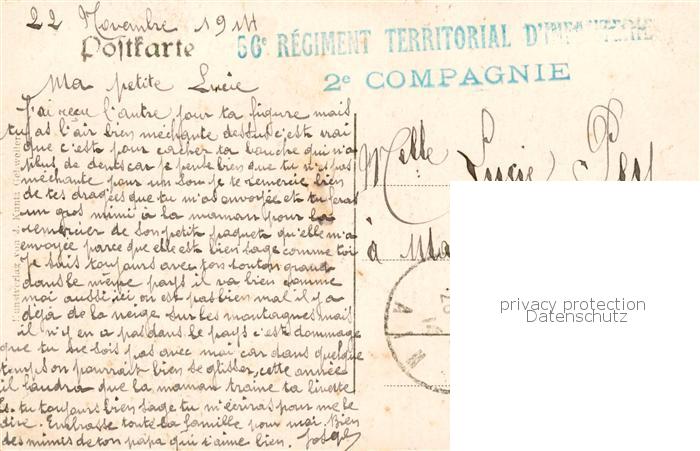 22 Novembre 1914
Postkarte
56e RÉGIMENT TERRITORIAL D'INFANTERIE
2e COMPAGNIE
Ma petite Lucie
J'ai reçu l'autre pour ta figure mais
tu as l'air bien méchante dessus c'est vrai
que c'est pour cacher ta bouche qui n'a
plus de dents car je pense bien que tu n'es pas
méchante pour un sou je te remercie bien
de tes dragées que tu m'as envoyée et tu feras
un gros mimi à la maman pour la
remercier de son petit paquet qu'elle m'a
envoyée parce que elle est bien sage comme toi
je suis toujours avec ton tonton grand
dans le même pays il va bien comme
moi aussi ici on est pas bien mal il y a
déjà de la neige sur les montagnes mais
il n'y en a pas dans le pays c'est dommage
que tu ne sois pas avec moi car dans quelque
temps on pourrait bien se glisser, cette année
il faudra que la maman traine ta
Es-tu toujours bien sage tu m'écriras pour me le
dire. Embrasse toute la famille pour moi. Bien
des mimis de ton papa qui t'aime bien. Joseph
Melle Lucie
à Ma
A I N
Kunstverlag von J. Kuntz Gebweiler
privacy protection
Datenschutz